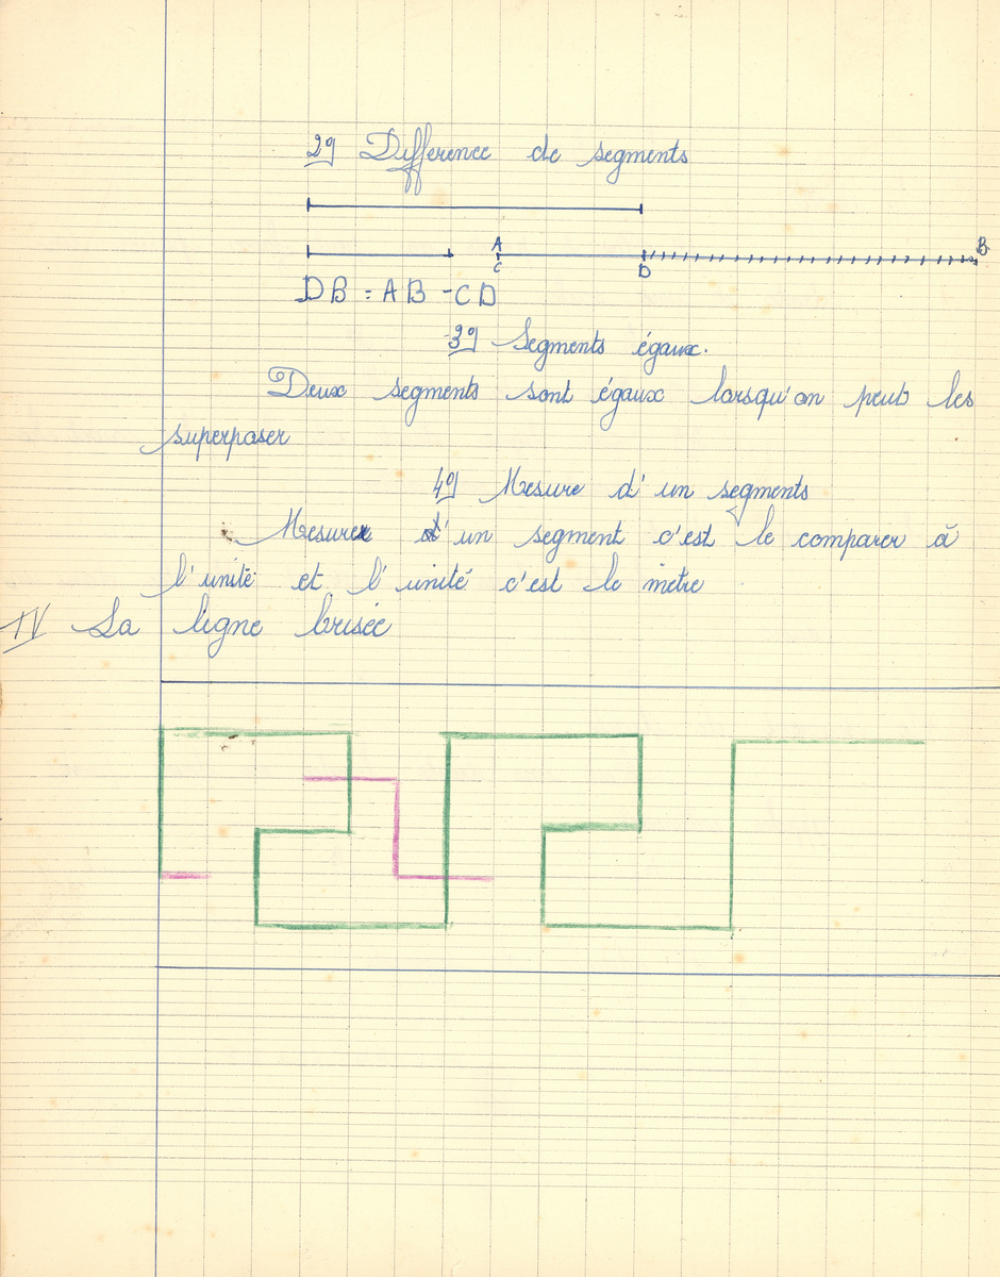 2°/ Difference de segments
A B
C D
DB = AB - CD
3°/ Segments égaux.
Deux segments sont égaux lorsqu'on peut les
superposer
4°/ Mesure d'un segments
Mesurer d'un segment c'est le comparer à
l'unité et l'unité c'est le mètre
IV La ligne brisée